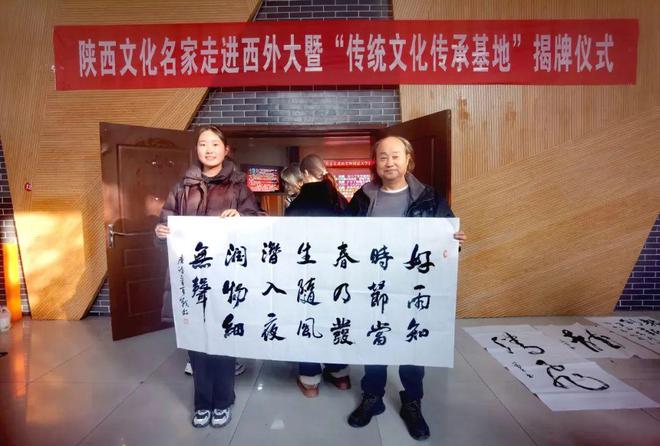 陕西文化名家走进西外大暨“传统文化传承基地”揭牌仪式
好雨知
時節當
春乃發
生隨風
潛入夜
润物細
無聲